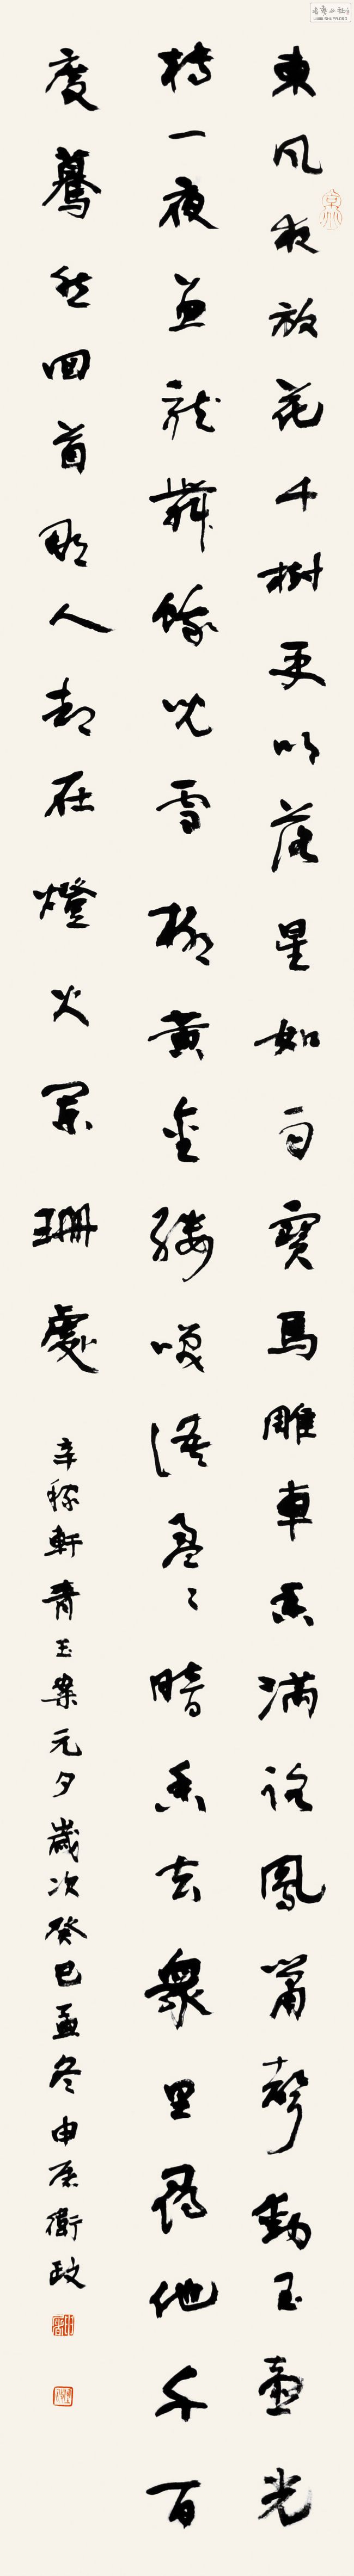 東風夜放花千樹更吹落星如雨寶馬雕車香滿路鳳簫聲動玉壺光
轉一夜魚龍舞蛾兒雪柳黃金縷笑語盈々暗香去眾里尋他千百
度驀然回首那人却在燈火闌珊處
辛稼軒青玉案元夕歲次癸巳孟冬申屠衛政